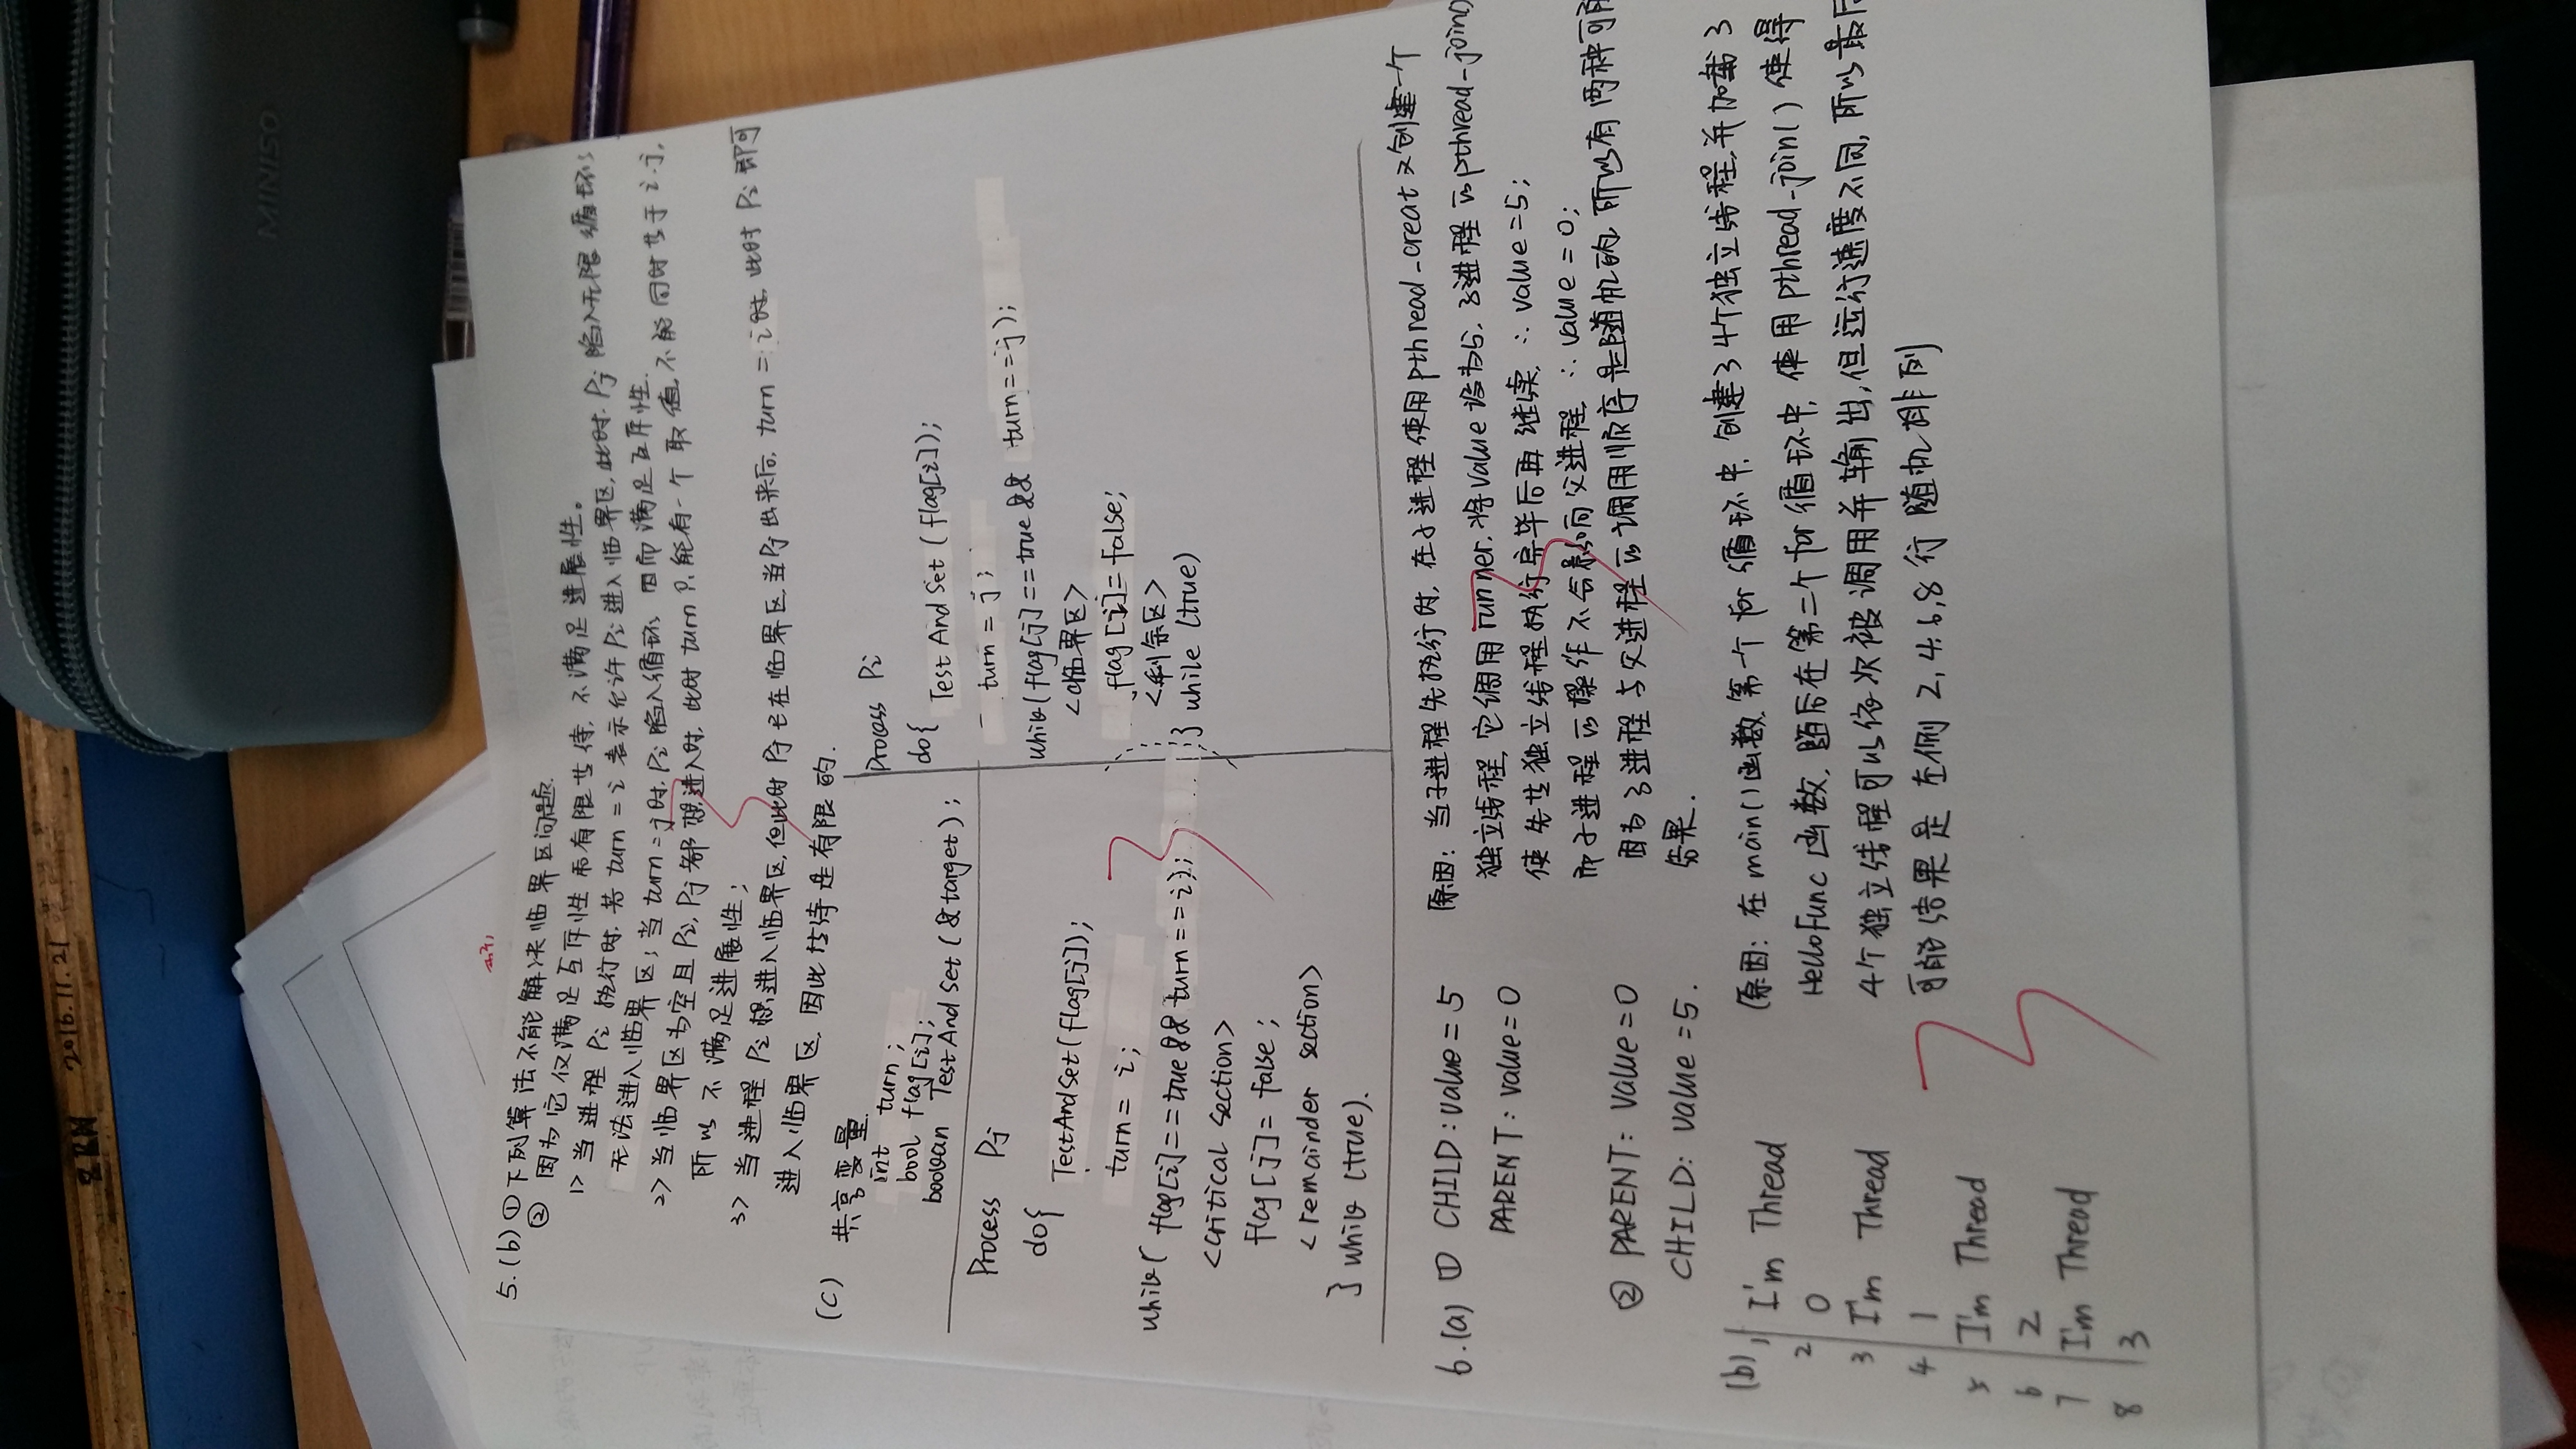 ZRM 2016.11.21
MINISO
5.(b) ① 下列算法不能解决临界区问题.
② 因为它仅满足互斥性和有限等待, 不满足进展性。
1> 当进程 Pi 执行时, 若 turn = i 表示允许 Pi 进入临界区, 此时, Pj 陷入无限循环
无法进入临界区; 当 turn = j 时, Pi 陷入循环 因而满足互斥性.
2> 当临界区为空且 Pi, Pj 都想进入时, 此时 turn 只能有一个取值, 不能同时等于 i, j,
所以不满足进展性;
3> 当进程 Pi 想进入临界区, 但此时 Pj 已在临界区, 当 Pj 出来后, turn = i 时, 此时 Pi 即可
进入临界区, 因此等待是有限的.
(C) 共享变量
int turn;
bool flag[i];
boolean TestAndSet (&target);
Process Pj
do{
TestAndSet(flag[j]);
turn = i;
while( flag[i]==true && turn==i);
<critical section>
flag[j] = false;
<remainder section>
} while (true).
Process Pi
do{
TestAndSet (flag[i]);
turn = j;
while(flag[j]==true && turn==j);
<临界区>
flag[i]=false;
<剩余区>
} while (true)
6.(a) ① CHILD: value = 5
PARENT: value = 0
② PARENT: value = 0
CHILD: value = 5.
原因: 当子进程先执行时, 在子进程使用 pthread_creat 又创建一个
独立线程, 它调用 runner, 将 value 设为5, 子进程的 pthread_join()
使先等独立线程执行完毕后再继续, ∴ value = 5;
而子进程的操作不会影响父进程, ∴ value = 0;
因为子进程与父进程的调用顺序是随机的, 所以有两种可能
结果.
(b) 1 I'm Thread
2 0
3 I'm Thread
4 1
5 I'm Thread
6 2
7 I'm Thread
8 3
原因: 在 main() 函数, 第一个 for 循环中, 创建了4个独立线程, 并加载了
HelloFunc 函数, 随后在第二个 for 循环中, 使用 pthread_join() 使得
4个独立线程可以依次被调用并输出, 但运行速度不同, 所以最后
可能结果是左侧 2, 4, 6, 8 行随机排列